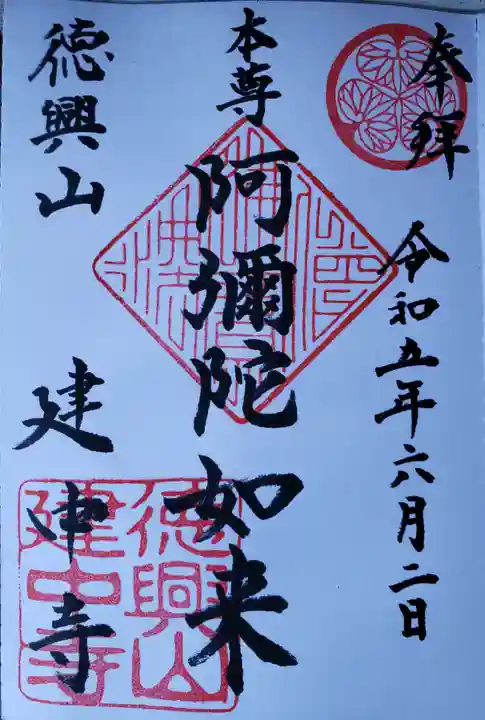 奉拜
令和五年六月二日
本尊
阿彌陀如来
徳興山
建中寺
徳興山
建中寺